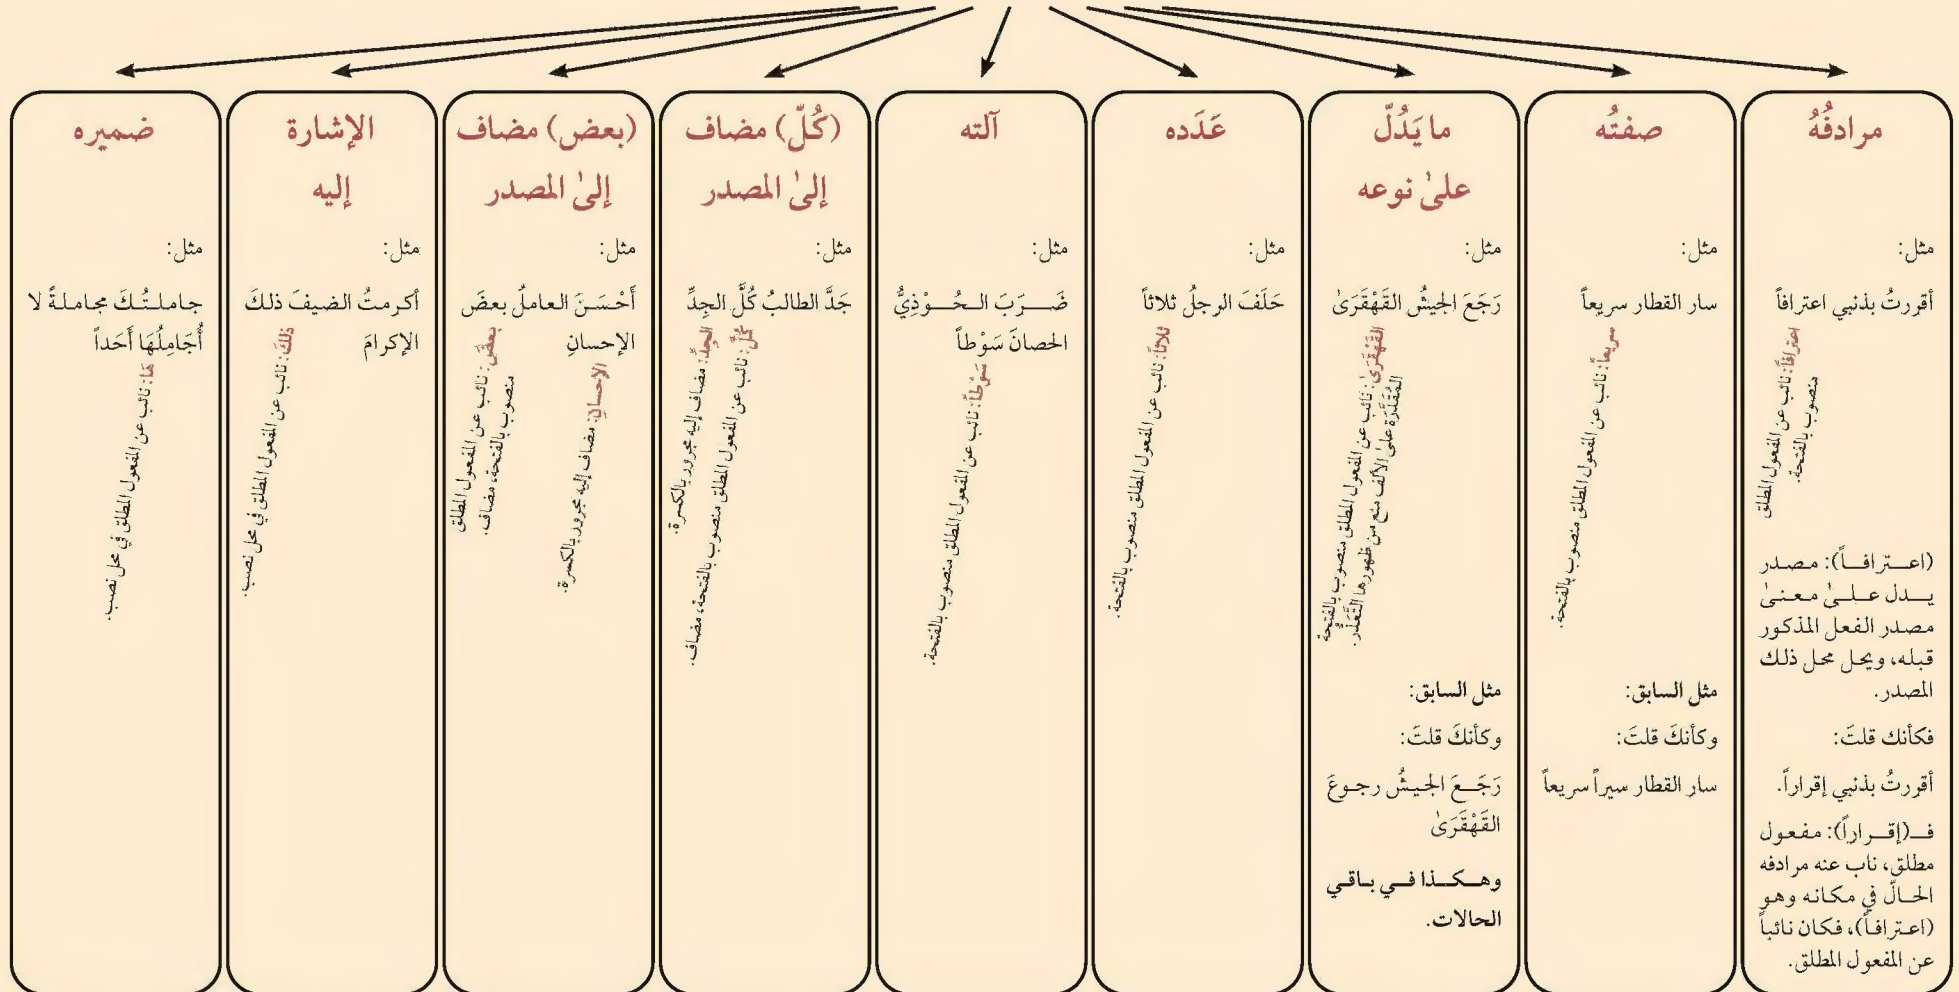 مرادفُهُ
مثل:
أقررتُ بذنبي اعترافاً
اعترافاً: نائب عن المفعول المطلق
منصوب بالفتحة.
(اعترافاً): مصدر
يدل علىٰ معنىٰ
مصدر الفعل المذكور
قبله، ويحل محل ذلك
المصدر.
فكأنك قلتَ:
أقررتُ بذنبي إقراراً.
فـ(إقراراً): مفعول
مطلق، ناب عنه مرادفه
الحالّ في مكانه وهو
(اعترافاً)، فكان نائباً
عن المفعول المطلق.
صفتُه
مثل:
سار القطار سريعاً
سريعاً: نائب عن المفعول المطلق منصوب بالفتحة.
مثل السابق:
وكأنكَ قلتَ:
سار القطار سيراً سريعاً
ما يَدُلّ
علىٰ نوعه
مثل:
رَجَعَ الجيشُ القَهْقَرَىٰ
القَهْقَرَىٰ: نائب عن المفعول المطلق منصوب بالفتحة
المُقَدَّرَة علىٰ الألف منع من ظهورها التَّعَذُّر.
مثل السابق:
وكأنكَ قلتَ:
رَجَعَ الجيشُ رجوعَ
القَهْقَرَىٰ
وهكذا في باقي
الحالات.
عَدَده
مثل:
حَلَفَ الرجلُ ثلاثاً
ثلاثاً: نائب عن المفعول المطلق منصوب بالفتحة.
آلته
مثل:
ضَرَبَ الحُوْذِيُّ
الحصانَ سَوْطاً
سَوْطاً: نائب عن المفعول المطلق منصوب بالفتحة.
(كُلّ) مضاف
إلىٰ المصدر
مثل:
جَدَّ الطالبُ كُلَّ الجِدِّ
كُلَّ: نائب عن المفعول المطلق منصوب بالفتحة، مضاف.
الجِدِّ: مضاف إليه مجرور بالكسرة.
(بعض) مضاف
إلىٰ المصدر
مثل:
أَحْسَنَ العاملُ بعضَ
الإحسانِ
بعضَ: نائب عن المفعول المطلق
منصوب بالفتحة، مضاف.
الإحسانِ: مضاف إليه مجرور بالكسرة.
الإشارة
إليه
مثل:
أكرمتُ الضيفَ ذلكَ
الإكرامَ
ذلكَ: نائب عن المفعول المطلق في محل نصب.
ضميره
مثل:
جاملتُكَ مجاملةً لا
أُجَامِلُهَا أَحَداً
هَا: نائب عن المفعول المطلق في محل نصب.